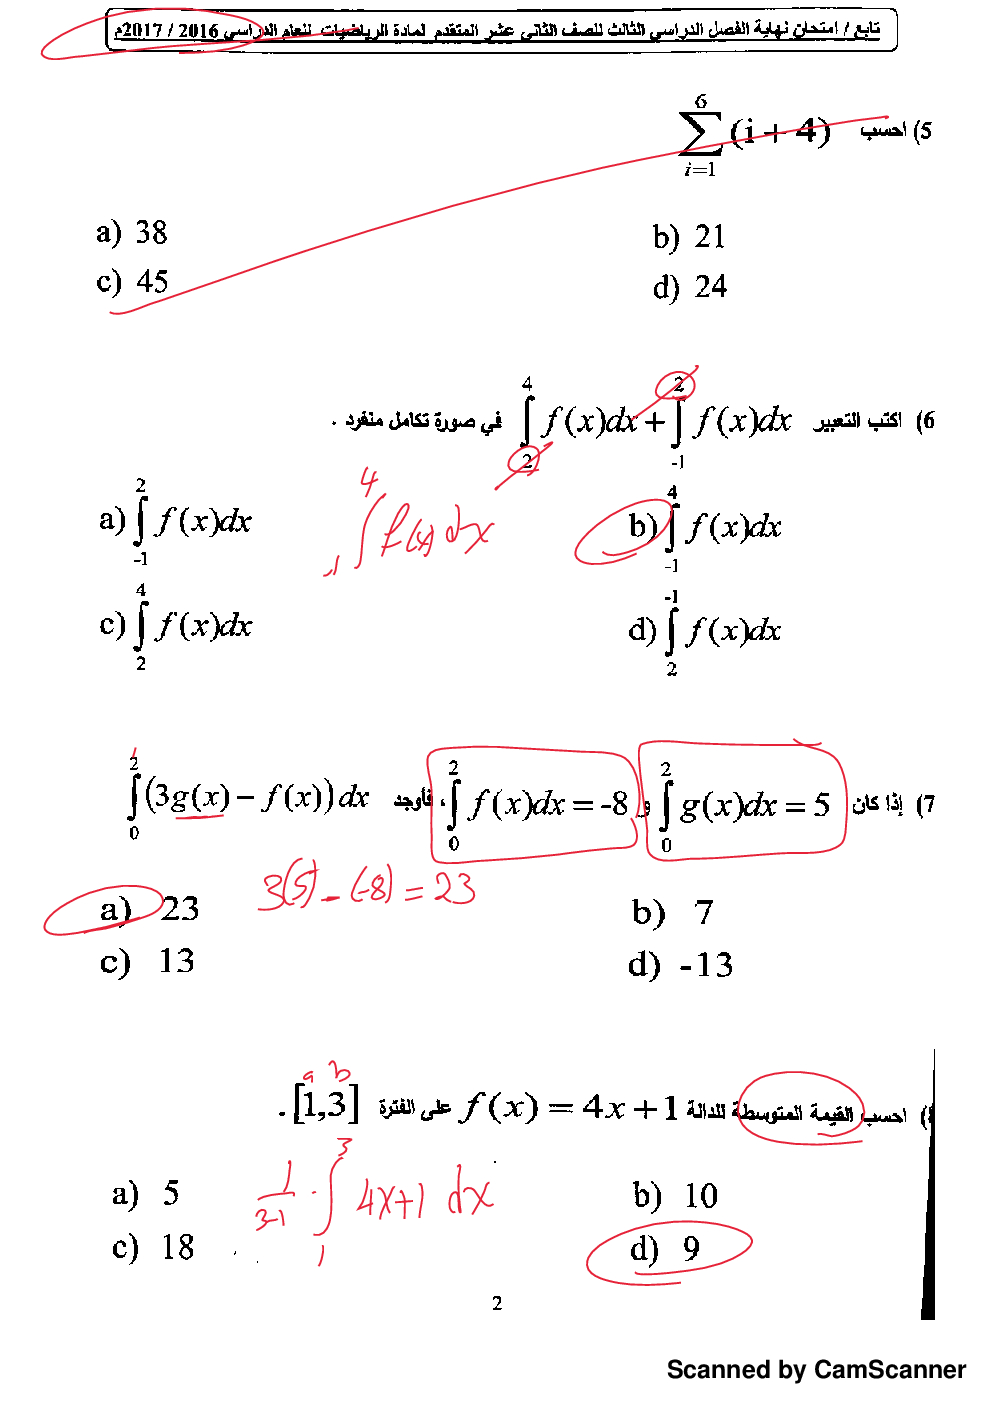 تابع / امتحان نهاية الفصل الدراسي الثالث للصف الثاني عشر المتقدم لمادة الرياضيات للعام الدراسي 2016 / 2017م
5) احسب \sum_{i=1}^{6} (i + 4)
a) 38 b) 21
c) 45 d) 24
6) اكتب التعبير \int_{-1}^{2} f(x)dx + \int_{2}^{4} f(x)dx في صورة تكامل منفرد .
a) \int_{-1}^{2} f(x)dx b) \int_{-1}^{4} f(x)dx
\int_{-1}^{4} f(x) dx
c) \int_{2}^{4} f(x)dx d) \int_{2}^{-1} f(x)dx
7) إذا كان \int_{0}^{2} g(x)dx = 5 و \int_{0}^{2} f(x)dx = -8 ، فأوجد \int_{0}^{2} (3g(x) − f(x)) dx
3(5) - (-8) = 23
a) 23 b) 7
c) 13 d) -13
a b
8) احسب القيمة المتوسطة للدالة f(x) = 4x + 1 على الفترة [1,3] .
\frac{1}{3-1} · \int_{1}^{3} 4x+1 dx
a) 5 b) 10
c) 18 d) 9
2
Scanned by CamScanner